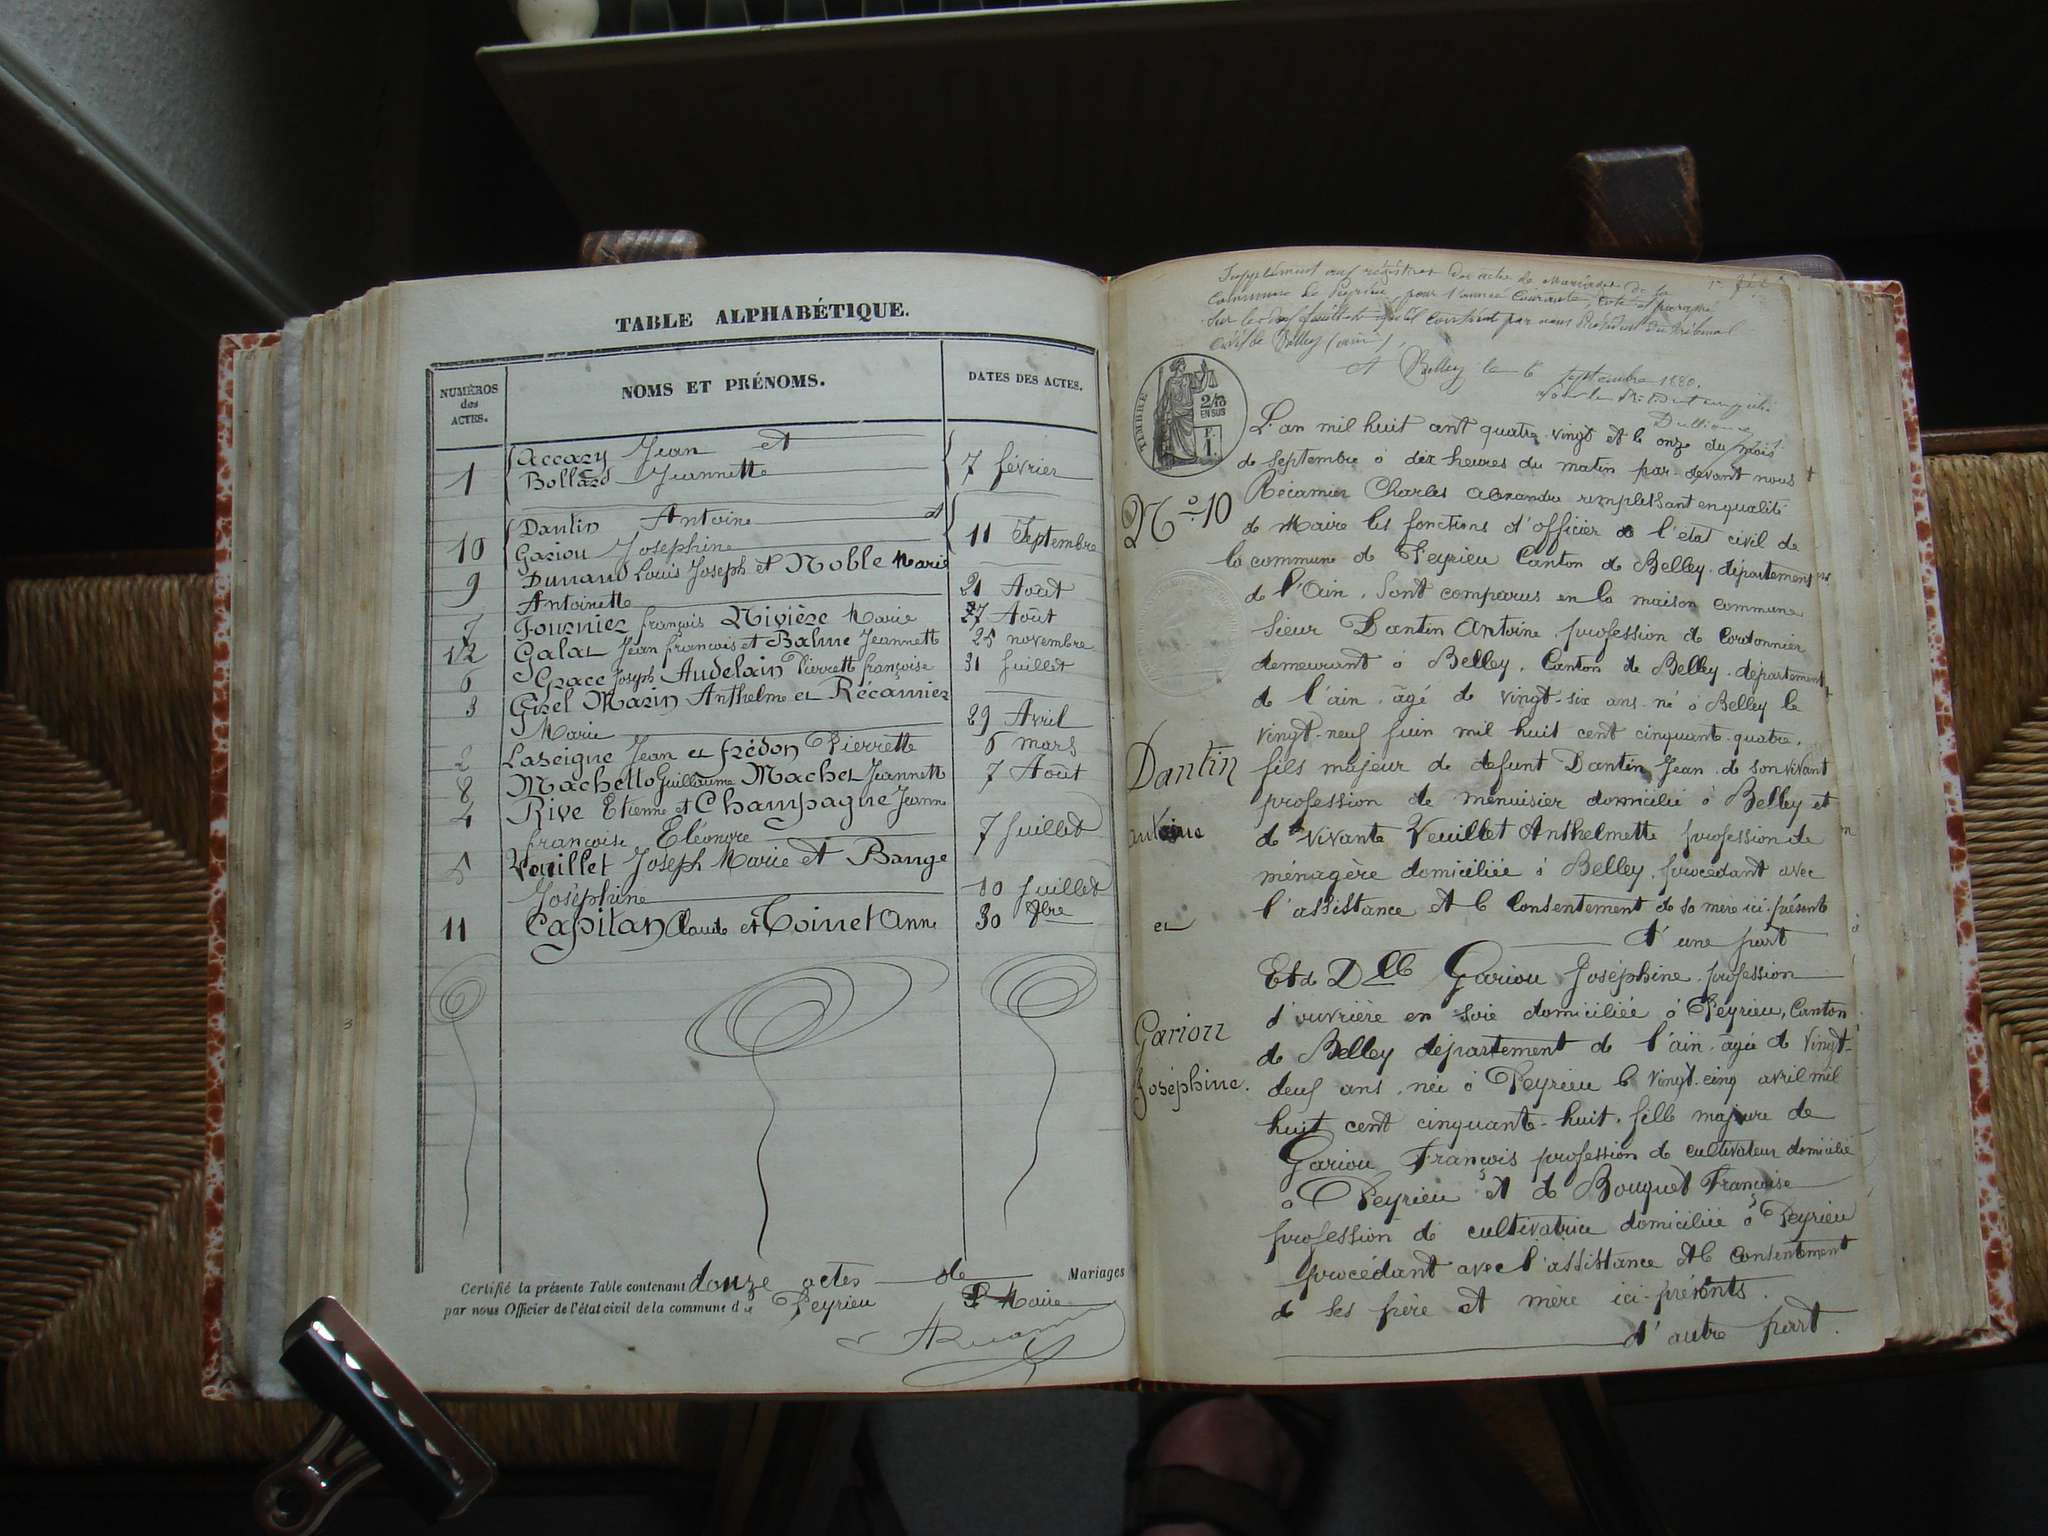 TABLE ALPHABÉTIQUE.
NUMÉROS des ACTES.
NOMS ET PRÉNOMS.
DATES DES ACTES.
1 Accary Jean et
Bollard Jeannette 7 février
10 Dantin Antoine et
Gariou Joséphine 11 Septembre
9 Dunand Louis Joseph et Noble Marie
Antoinette 21 Août
7 Fournier françois Rivière Marie 27 Août
12 Galat Jean françois et Balme Jeannette 25 novembre
6 Grace Joseph Audelain Pierrette françoise 31 Juillet
3 Girel Marin Anthelme et Récamier
Marie 29 Avril
2 Laseigne Jean et frédon Pierrette 6 mars
8 Machetto Guillaume Machet Jeannette 7 Août
4 Rive Etienne et Champagne Jeanne
françoise Eléonore 7 Juillet
5 Vouillet Joseph Marie et Bange
Joséphine 10 Juillet
11 Capitan Claude et Toinet Anne 30 7bre
Certifié la présente Table contenant douze actes de Mariages
par nous Officier de l'état civil de la commune de Peyrieu Le Maire
Supplément aux régistres des actes de Mariages de la
commune de Peyrieu, pour l'année courante, coté et paraphé
sur les feuillets par nous Président du tribunal
civil de Belley (ain)
A Belley le 6 septembre 1880.
TIMBRE
2/10
EN SUS
1 F.
L'an mil huit cent quatre-vingt et le onze du mois
de Septembre à dix heures du matin par-devant nous
N° 10
Récamier Charles Alexandre remplissant en qualité
de Maire les fonctions d'officier de l'état civil de
la commune de Peyrieu Canton de Belley, département
de l'Ain. Sont comparus en la maison commune
Sieur Dantin Antoine, profession de Cordonnier
demeurant à Belley, Canton de Belley, département
de l'ain, âgé de vingt-six ans, né à Belley le
vingt-neuf juin mil huit cent cinquante-quatre,
Dantin
fils majeur de defunt Dantin Jean, de son vivant
profession de menuisier domicilié à Belley et
antoine
de vivante Veuillet Anthelmette profession de
ménagère domiciliée à Belley, procédant avec
l'assistance et le Consentement de sa mère ici-présente
et
d'une part
Et de Dlle Gariou Joséphine, profession
d'ouvrière en soie domiciliée à Peyrieu, Canton
Gariou
de Belley département de l'ain, âgée de Vingt-
Joséphine.
deux ans, née à Peyrieu le vingt-cinq avril mil
huit cent cinquante-huit, fille majeure de
Gariou François profession de cultivateur domicilié
à Peyrieu et de Bouquet Françoise
profession de cultivatrice domiciliée à Peyrieu
procédant avec l'assistance et le Consentement
de ses père et mère ici-présents.
d'autre part.